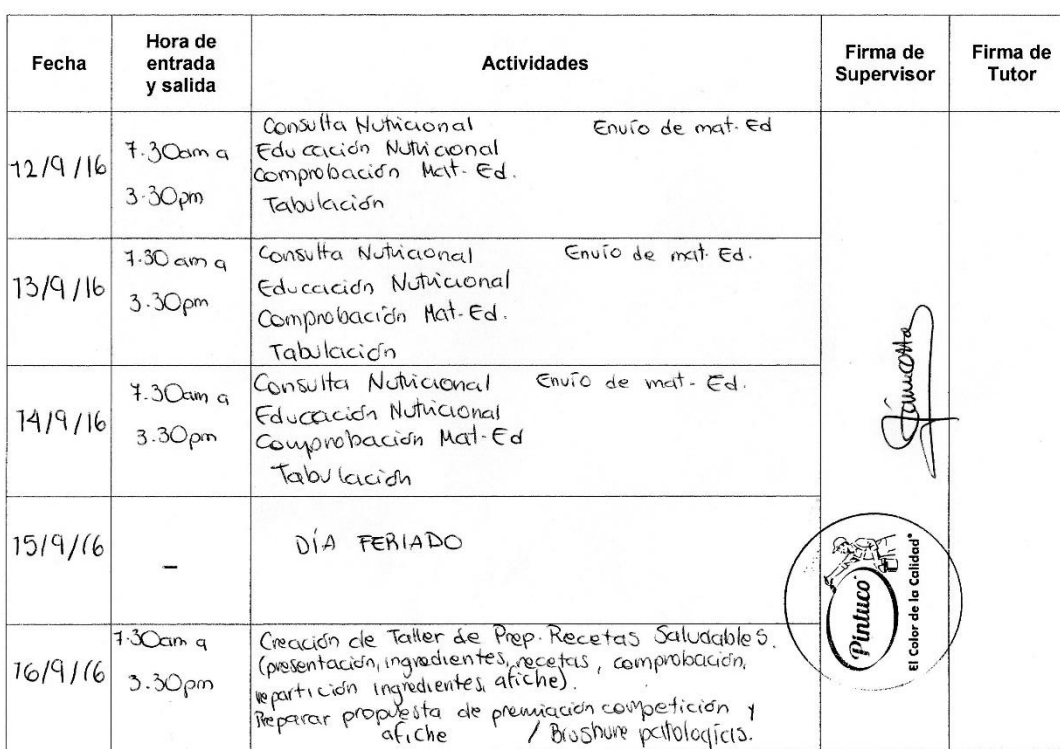 Fecha
Hora de
entrada
y salida
Actividades
Firma de
Supervisor
Firma de
Tutor
12/9/16
7.30am a
3.30pm
Consulta Nutricional Envío de mat. Ed
Educación Nutricional
Comprobación Mat-Ed.
Tabulación
13/9/16
7.30 am a
3.30pm
Consulta Nutricional Envío de mat. Ed.
Educación Nutricional
Comprobación Mat-Ed.
Tabulación
14/9/16
7.30am a
3.30pm
Consulta Nutricional Envío de mat-Ed.
Educación Nutricional
Comprobación Mat-Ed
Tabulación
15/9/16
–
DÍA FERIADO
16/9/16
7.30am a
3.30pm
Creación de Taller de Prep. Recetas Saludables.
(presentación, ingredientes, recetas, comprobación,
repartición ingredientes, afiche).
Preparar propuesta de premiación competición y
afiche / Broshure patologías.
Pintuco
El Color de la Calidad®